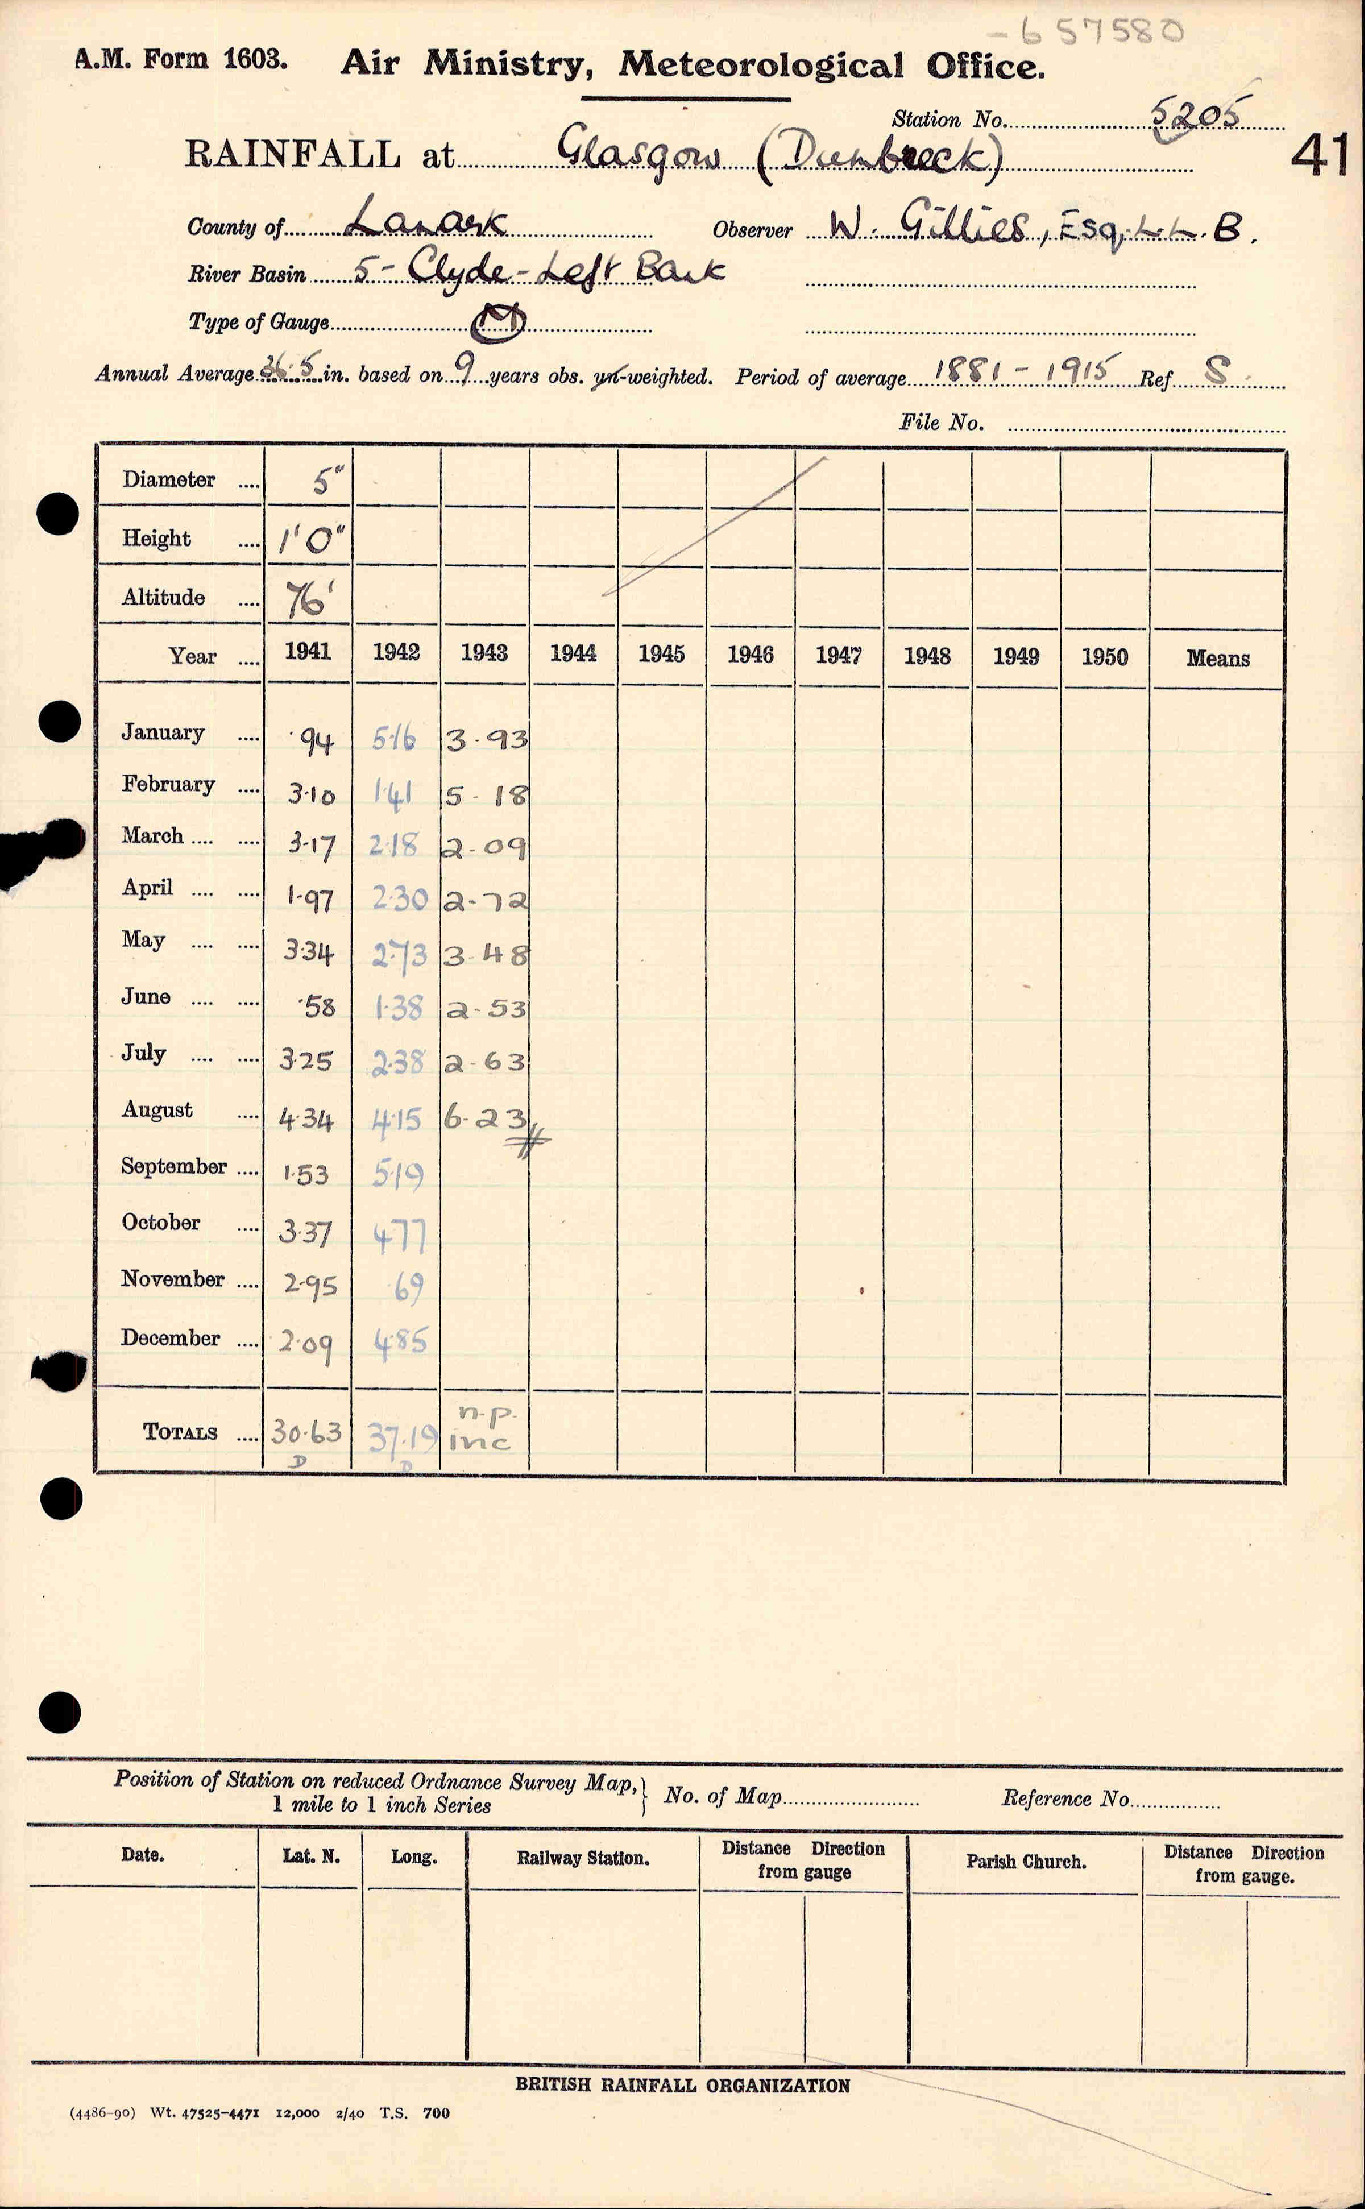 - 6 57580
A.M. Form 1603. Air Ministry, Meteorological Office.
Station No. 5205
41
RAINFALL at Glasgow (Dumbreck)
County of Lanark Observer W. Gillies, Esq, L.L.B.
River Basin 5 - Clyde - Left Bank
Type of Gauge M
Annual Average 36.5 in. based on 9 years obs. un-weighted. Period of average 1881 - 1915 Ref S.
File No.
Diameter .... 5"
Height .... 1' 0"
Altitude .... 76'
Year .... 1941 1942 1943 1944 1945 1946 1947 1948 1949 1950 Means
January .... .94 5.16 3.93
February .... 3.10 1.41 5.18
March .... .... 3.17 2.18 2.09
April .... .... 1.97 2.30 2.72
May .... .... 3.34 2.73 3.48
June .... .... .58 1.38 2.53
July .... .... 3.25 2.38 2.63
August .... 4.34 4.15 6.23
September .... 1.53 5.19
October .... 3.37 4.77
November .... 2.95 .69
December .... 2.09 4.85
n.p.
TOTALS .... 30.63 37.19 inc
D D
Position of Station on reduced Ordnance Survey Map, } No. of Map Reference No.
1 mile to 1 inch Series
Date. Lat. N. Long. Railway Station. Distance Direction from gauge Parish Church. Distance Direction from gauge.
BRITISH RAINFALL ORGANIZATION
(4486-90) Wt. 47525-4471 12,000 2/40 T.S. 700